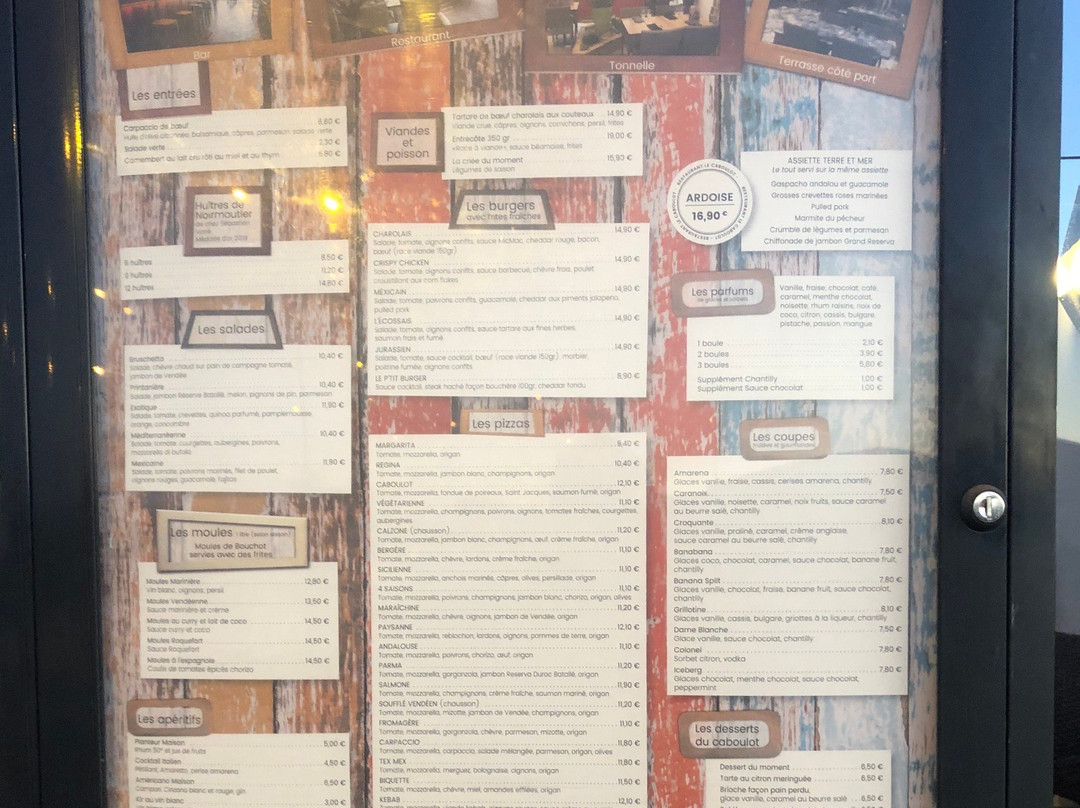 Bar
Restaurant
Tonnelle
Terrasse côté port
Les entrées
Carpaccio de bœuf
Salade verte
2,30 €
Camembert au lait cru rôti au miel et au thym
Huîtres de
Noirmoutier
6 huîtres 6,50 €
9 huîtres 11,20 €
12 huîtres 14,80 €
Les salades
Bruschetta 10,40 €
Salade, chèvre chaud sur pain de campagne tomaté,
jambon de Vendée
Printanière 10,40 €
Salade, jambon Réserve Batallé, melon, pignons de pin, parmesan
Exotique 11,90 €
Salade, tomate, crevettes, quinoa parfumé, pamplemousse
orange, concombre
Méditerranéenne 10,40 €
Salade, tomate, courgettes, aubergines, poivrons,
mozzarella di bufala
Mexicaine 11,90 €
Salade, tomate, poivrons marinés, filet de poulet,
oignons rouges, guacamole, fajitas
Les moules
Moules de Bouchot
servies avec des frites
Moules Marinière 12,90 €
Vin blanc, oignons, persil
Moules Vendéenne 13,50 €
Sauce marinière et crème
Moules au curry et lait de coco 14,50 €
Sauce curry et coco
Moules Roquefort 14,50 €
Sauce Roquefort
Moules à l'espagnole 14,50 €
Coulis de tomates épicés chorizo
Les apéritifs
Planteur Maison 5,00 €
Rhum 50° et jus de fruits
Cocktail Italien 4,90 €
Pétillant, Amaretto, cerise amarena
Américano Maison 6,50 €
Campari, Cinzano blanc et rouge, gin
Kir au vin blanc 3,00 €
Viandes
et
poisson
Tartare de bœuf charolais aux couteaux 14,90 €
Viande crue, câpres, oignons, cornichons, persil, frites
Entrecôte 350 gr 19,00 €
«Race à viande», sauce béarnaise, frites
La criée du moment 15,90 €
Légumes de saison
Les burgers
avec frites fraîches
CHAROLAIS 14,90 €
Salade, tomate, oignons confits, sauce MicMac, cheddar rouge, bacon,
bœuf (race viande 150gr)
CRISPY CHICKEN 14,90 €
Salade, tomate, oignons confits, sauce barbecue, chèvre frais, poulet
croustillant aux corn flakes
MEXICAIN 14,90 €
Salade, tomate, poivrons confits, guacamole, cheddar aux piments jalapeno,
pulled pork
L'ÉCOSSAIS 14,90 €
Salade, tomate, oignons confits, sauce tartare aux fines herbes,
saumon frais et fumé
JURASSIEN 14,90 €
Salade, tomate, sauce cocktail, bœuf (race viande 150gr), morbier,
poitrine fumée, oignons confits
LE P'TIT BURGER 8,90 €
Sauce cocktail, steak haché façon bouchère 100gr, cheddar fondu
Les pizzas
MARGARITA 9,40 €
Tomate, mozzarella, origan
REGINA 10,40 €
Tomate, mozzarella, jambon blanc, champignons, origan
CABOULOT 12,10 €
Tomate, mozzarella, fondue de poireaux, Saint Jacques, saumon fumé, origan
VÉGÉTARIENNE 11,10 €
Tomate, mozzarella, champignons, poivrons, oignons, tomates fraîches, courgettes,
aubergines
CALZONE (chausson) 11,20 €
Tomate, mozzarella, jambon blanc, champignons, œuf, crème fraîche, origan
BERGÈRE 11,10 €
Tomate, mozzarella, chèvre, lardons, crème fraîche, origan
SICILIENNE 11,10 €
Tomate, mozzarella, anchois marinés, câpres, olives, persillade, origan
4 SAISONS 11,10 €
Tomate, mozzarella, poivrons, champignons, jambon blanc, chorizo, origan, olives
MARAÎCHINE 11,20 €
Tomate, mozzarella, chèvre, oignons, jambon de Vendée, origan
PAYSANNE 12,10 €
Tomate, mozzarella, reblochon, lardons, oignons, pommes de terre, origan
ANDALOUSE 11,10 €
Tomate, mozzarella, poivrons, chorizo, œuf, origan
PARMA 11,20 €
Tomate, mozzarella, gorgonzola, jambon Reserva Duroc Batallé, origan
SALMONE 11,90 €
Tomate, mozzarella, champignons, crème fraîche, saumon mariné, origan
SOUFFLÉ VENDÉEN (chausson) 11,20 €
Tomate, mozzarella, mizotte, jambon de Vendée, champignons, origan
FROMAGÈRE 11,10 €
Tomate, mozzarella, gorgonzola, chèvre, parmesan, mizotte, origan
CARPACCIO 11,80 €
Tomate, mozzarella, carpaccio, salade mélangée, parmesan, origan, olives
TEX MEX 11,80 €
Tomate, mozzarella, merguez, bolognaise, oignons, origan
BIQUETTE 11,50 €
Tomate, mozzarella, chèvre, miel, amandes effilées, origan
KEBAB 12,10 €
RESTAURANT LE CABOULOT
ARDOISE
16,90 €
ASSIETTE TERRE ET MER
Le tout servi sur la même assiette
Gaspacho andalou et guacamole
Grosses crevettes roses marinées
Pulled pork
Marmite du pêcheur
Crumble de légumes et parmesan
Chiffonade de jambon Grand Reserva
Les parfums
de glaces et sorbets
Vanille, fraise, chocolat, café,
caramel, menthe chocolat,
noisette, rhum raisins, noix de
coco, citron, cassis, bulgare,
pistache, passion, mangue
1 boule 2,10 €
2 boules 3,90 €
3 boules 5,80 €
Supplément Chantilly 1,00 €
Supplément Sauce chocolat 1,00 €
Les coupes
Amarena 7,80 €
Glaces vanille, fraise, cassis, cerises amarena, chantilly
Caranoix 7,50 €
Glaces vanille, noisette, caramel, noix fruits, sauce caramel
au beurre salé, chantilly
Croquante 8,10 €
Glaces vanille, praliné, caramel, crème anglaise,
sauce caramel au beurre salé, chantilly
Banabana 7,80 €
Glaces coco, chocolat, caramel, sauce chocolat, banane fruit,
chantilly
Banana Split 7,80 €
Glaces vanille, chocolat, fraise, banane fruit, sauce chocolat,
chantilly
Grillotine 8,10 €
Glaces vanille, cassis, bulgare, griottes à la liqueur, chantilly
Dame Blanche 7,50 €
Glace vanille, sauce chocolat, chantilly
Colonel 7,80 €
Sorbet citron, vodka
Iceberg 7,80 €
Glaces chocolat, menthe chocolat, sauce chocolat,
peppermint
Les desserts
du caboulot
Dessert du moment 6,50 €
Tarte au citron meringuée 6,50 €
Brioche façon pain perdu,
glace vanille, caramel au beurre salé 6,50 €